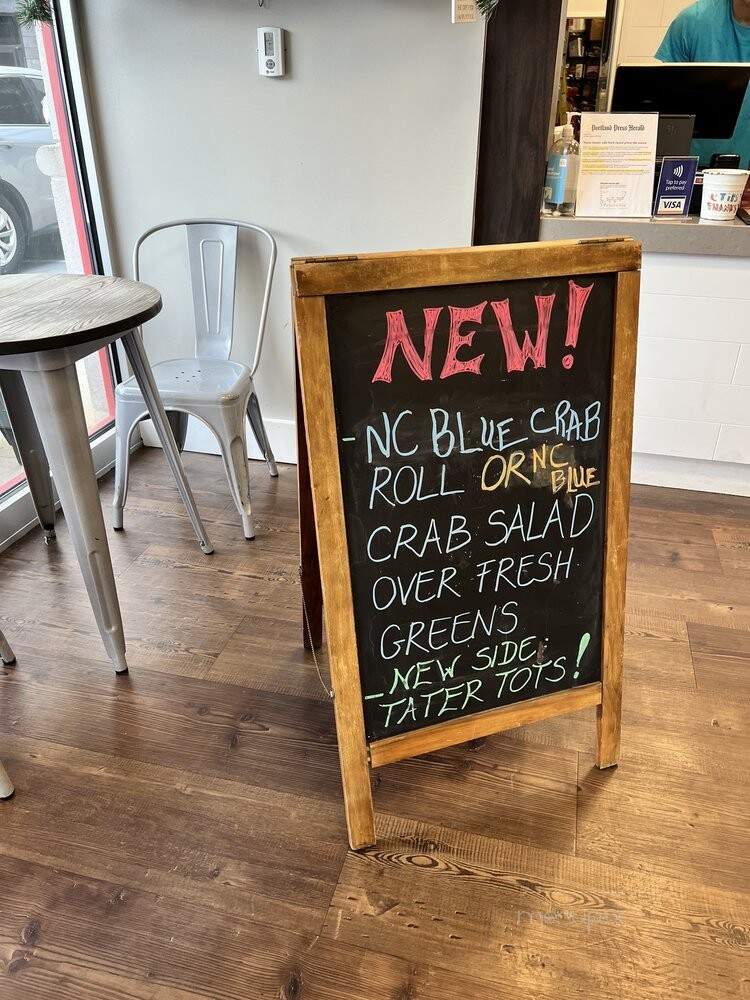 Portland Press Herald
Tap to pay
preferred
VISA
NEW!
-NC BLUE CRAB
ROLL OR NC BLUE
CRAB SALAD
OVER FRESH
GREENS
-NEW SIDE:
TATER TOTS!